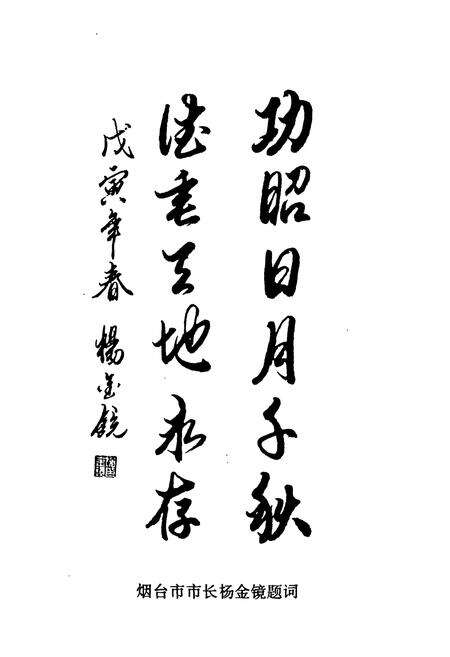 功昭日月千秋
德重天地永存
戊寅年春 楊金鏡
烟台市市长杨金镜题词